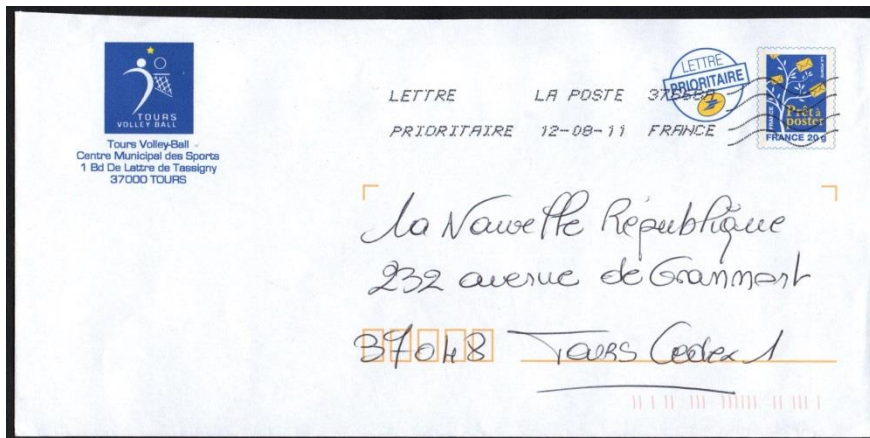 TOURS
VOLLEY BALL
Tours Volley-Ball
Centre Municipal des Sports
1 Bd De Lattre de Tassigny
37000 TOURS
LETTRE LA POSTE
PRIORITAIRE 12-08-11 FRANCE
LETTRE
PRIORITAIRE
Prêt à
poster
FRANCE 20g
La Nouvelle République
232 avenue de Grammont
37048 Tours Cedex 1